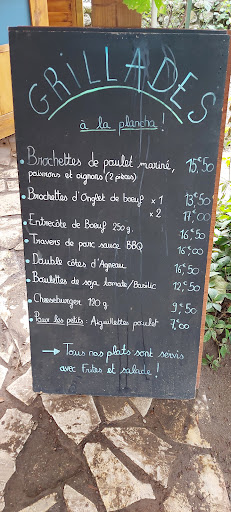 GRILLADES
à la plancha !
Brochettes de poulet mariné, 15€,50
poivrons et oignons (2 pièces)
Brochettes d'Onglet de boeuf × 1 13€,50
× 2 17€,00
Entrecôte de Boeuf 250 g. 16€,50
Travers de porc sauce BBQ 16€,00
Double côtes d'Agneau 16€,50
Boulettes de soja tomate/Basilic 12€,50
Cheeseburger 120 g. 9€,50
Pour les petits : Aiguillettes poulet 7€,00
→ Tous nos plats sont servis
avec Frites et salade !